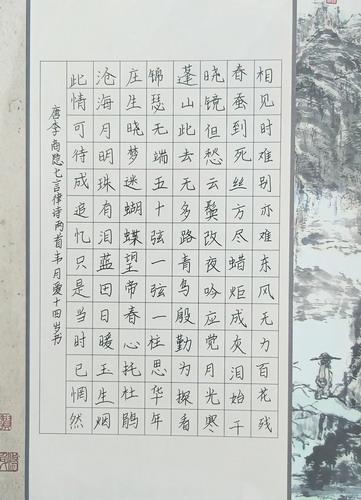 相见时难别亦难东风无力百花残
春蚕到死丝方尽蜡炬成灰泪始干
晓镜但愁云鬓改夜吟应觉月光寒
蓬山此去无多路青鸟殷勤为探看
锦瑟无端五十弦一弦一柱思华年
庄生晓梦迷蝴蝶望帝春心托杜鹃
沧海月明珠有泪蓝田日暖玉生烟
此情可待成追忆只是当时已惘然
唐李商隐七言律诗两首韦月爱十四岁书